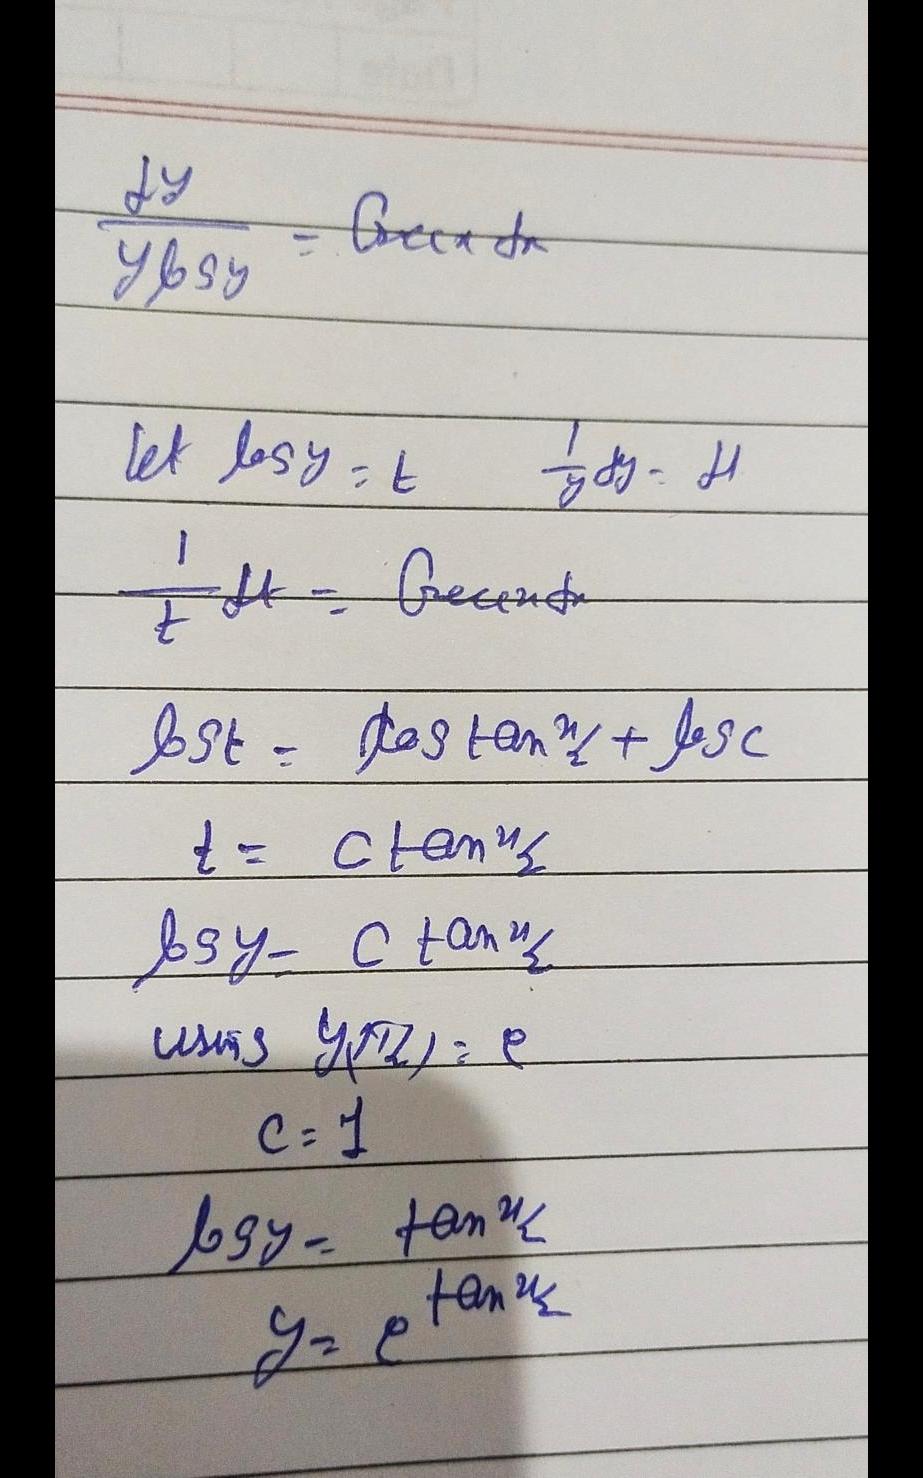 dy / y log y = Cosec x dx
let log y = t 1/y dy = dt
1/t dt = Cosec x dx
log t = log tan x/2 + log c
t = c tan x/2
log y = c tan x/2
using y(π/2) = e
c = 1
log y = tan x/2
y = e^tan x/2